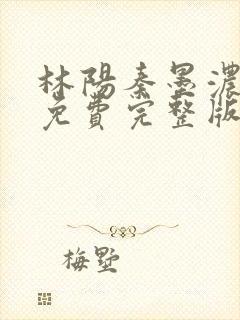 林陽秦墨濃
免費完整版
梅墅